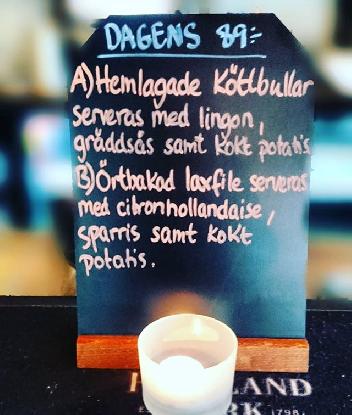 DAGENS 89:-
A) Hemlagade Köttbullar
serveras med lingon,
gräddsås samt kokt potatis
B) Örtbakad laxfile serveras
med citronhollandaise,
sparris samt kokt
potatis.
LAND
1795